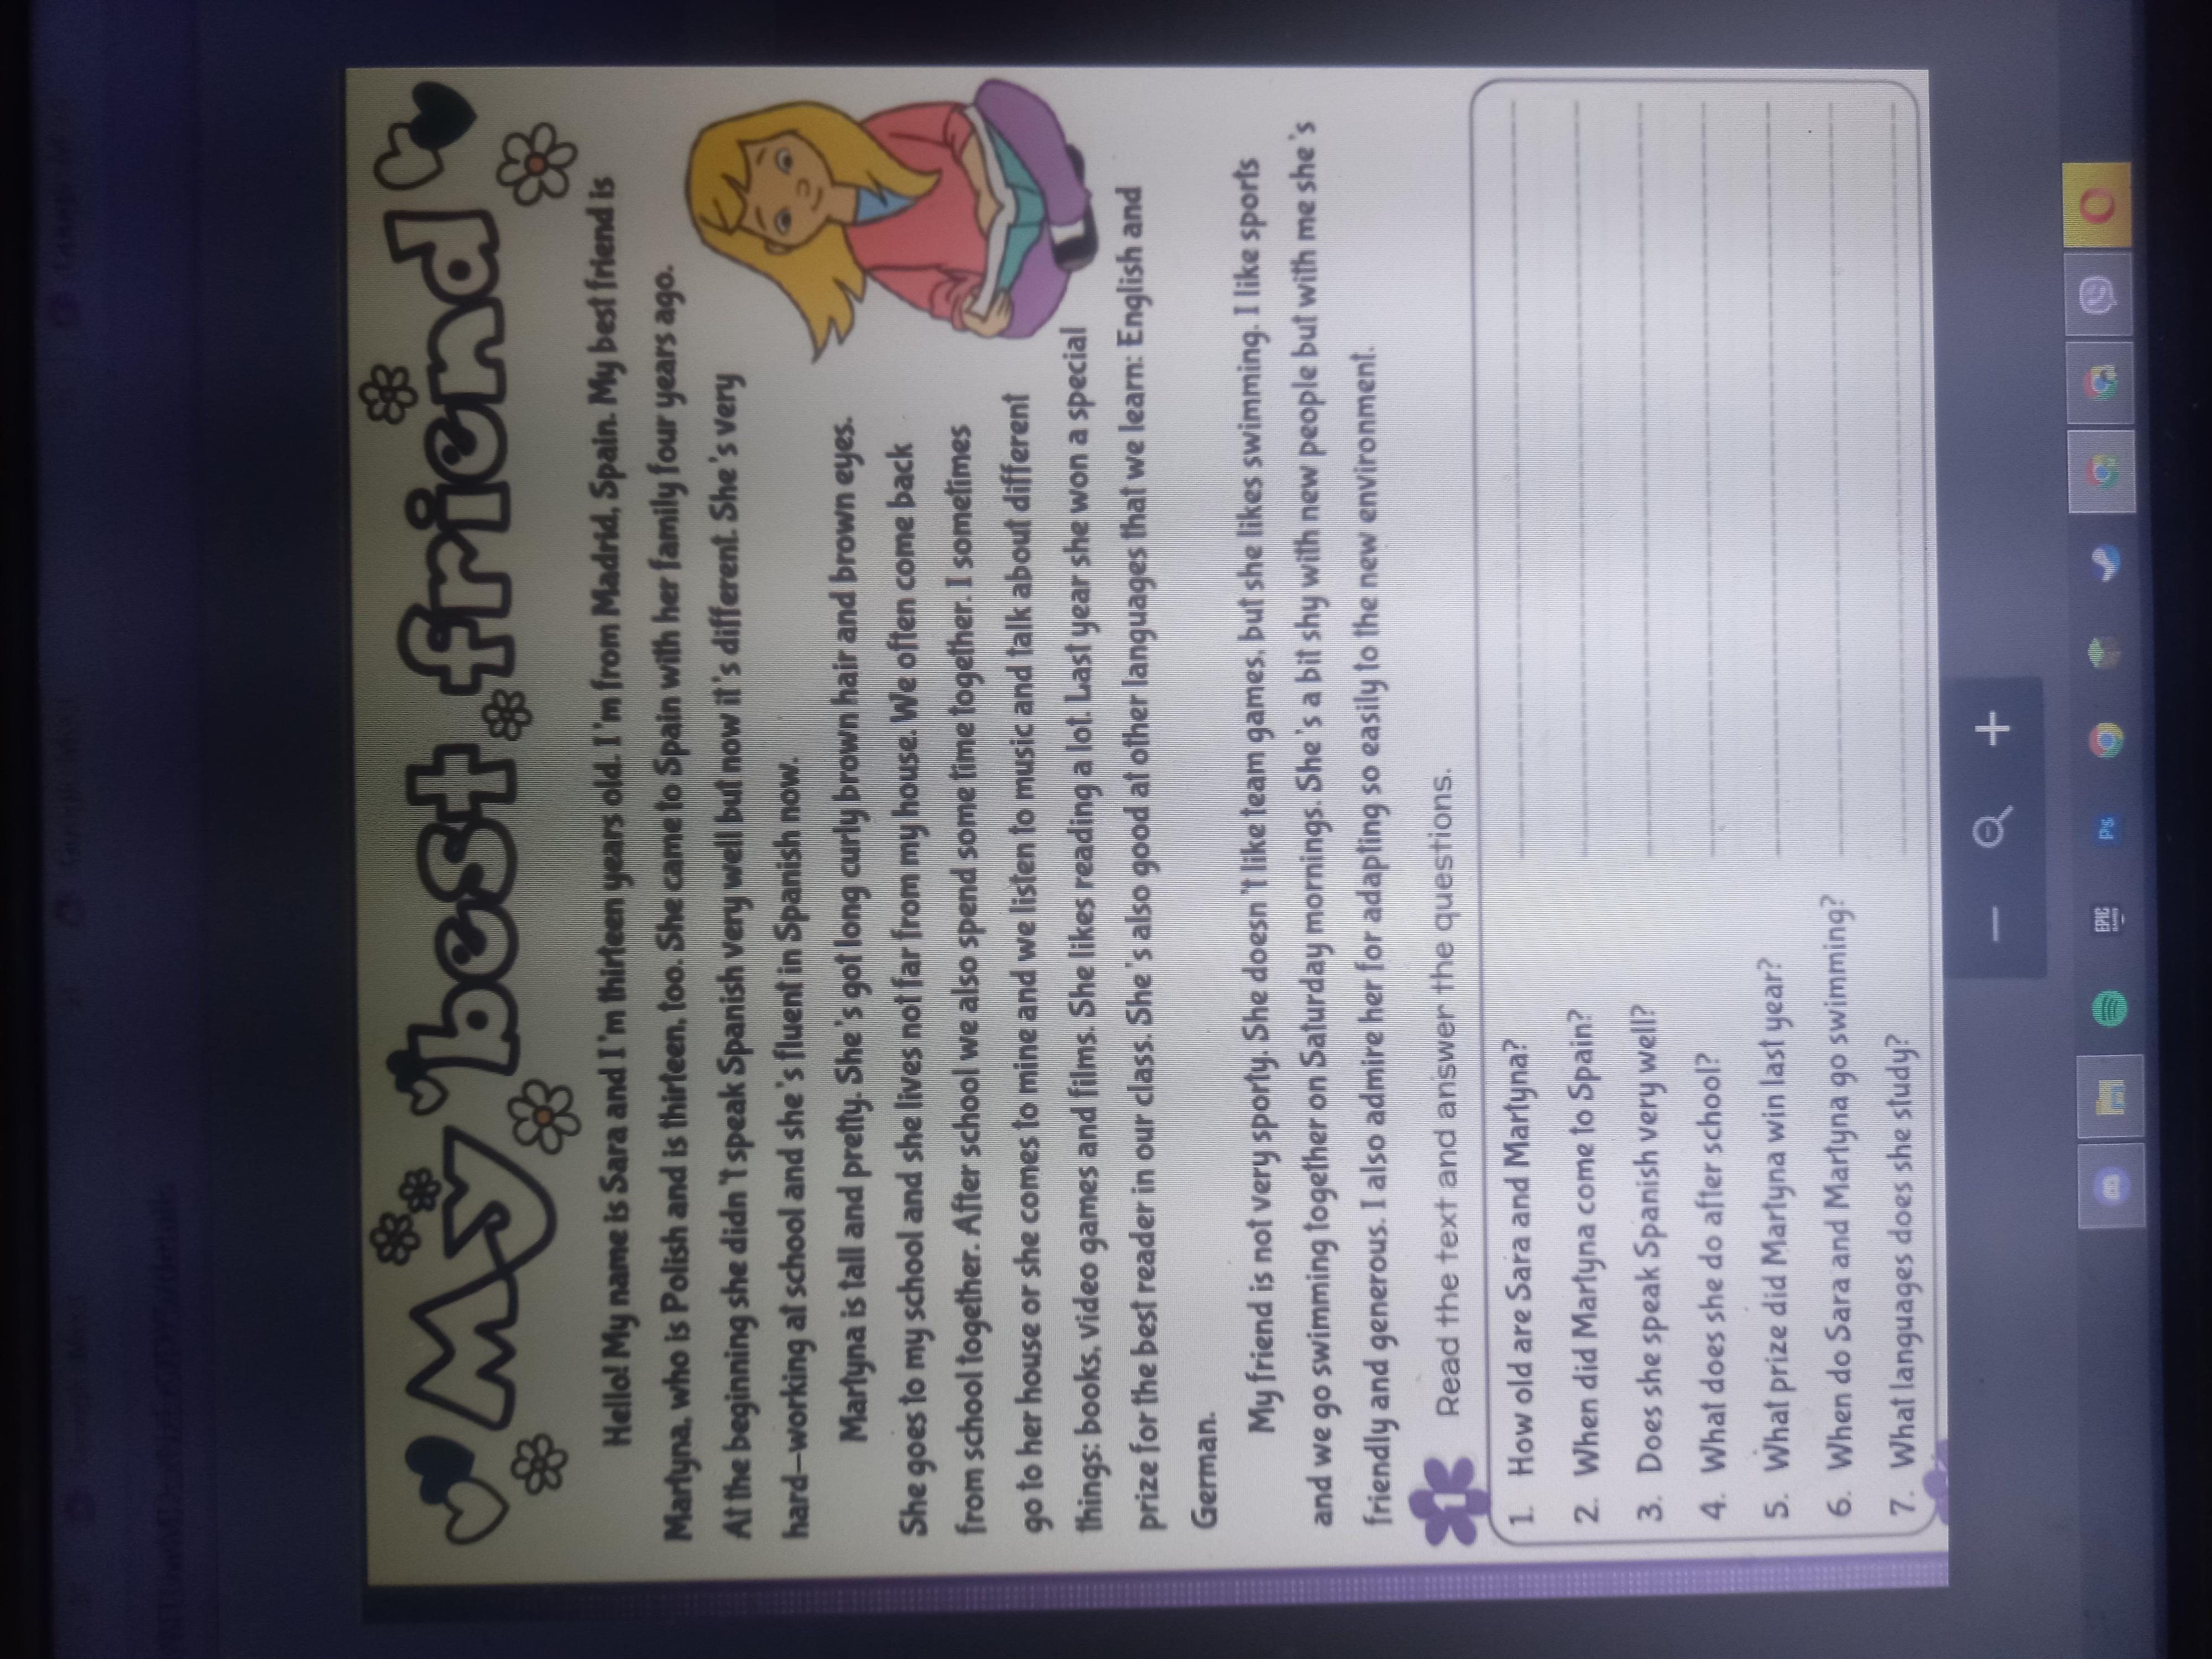 My best friend
Hello! My name is Sara and I'm thirteen years old. I'm from Madrid, Spain. My best friend is
Martyna, who is Polish and is thirteen, too. She came to Spain with her family four years ago.
At the beginning she didn't speak Spanish very well but now it's different. She's very
hard-working at school and she's fluent in Spanish now.
Martyna is tall and pretty. She's got long curly brown hair and brown eyes.
She goes to my school and she lives not far from my house. We often come back
from school together. After school we also spend some time together. I sometimes
go to her house or she comes to mine and we listen to music and talk about different
things: books, video games and films. She likes reading a lot. Last year she won a special
prize for the best reader in our class. She's also good at other languages that we learn: English and
German.
My friend is not very sporty. She doesn't like team games, but she likes swimming. I like sports
and we go swimming together on Saturday mornings. She's a bit shy with new people but with me she's
friendly and generous. I also admire her for adapting so easily to the new environment.
1 Read the text and answer the questions.
1. How old are Sara and Martyna?
2. When did Martyna come to Spain?
3. Does she speak Spanish very well?
4. What does she do after school?
5. What prize did Martyna win last year?
6. When do Sara and Martyna go swimming?
7. What languages does she study?
EPIC
Ps